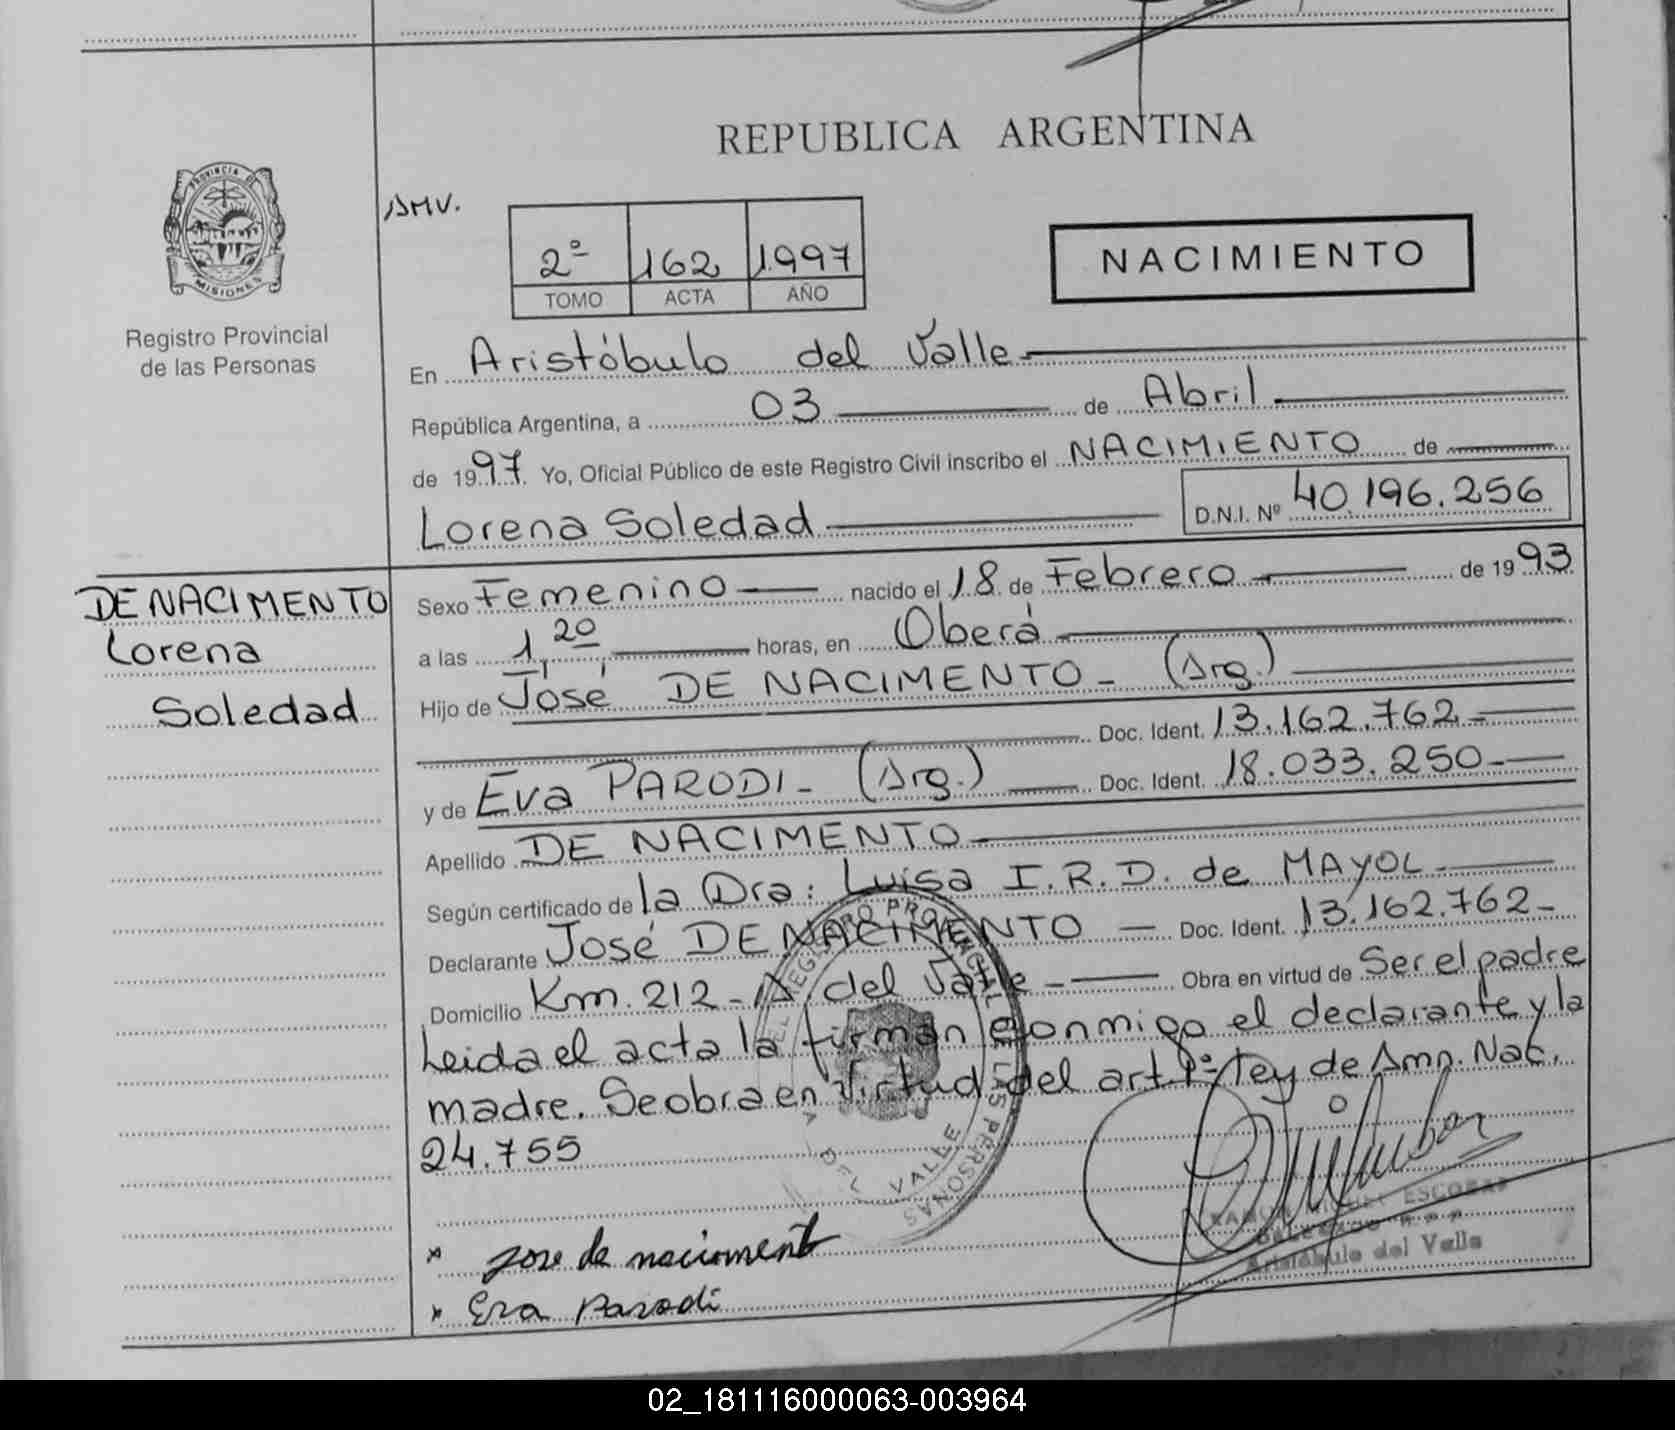 REPUBLICA ARGENTINA
PROVINCIA DE
MISIONES
Registro Provincial
de las Personas
AMV.
2º 162 1.997
TOMO ACTA AÑO
NACIMIENTO
En Aristóbulo del Valle
República Argentina, a 03 de Abril
de 1997. Yo, Oficial Público de este Registro Civil inscribo el NACIMIENTO de
Lorena Soledad D.N.I. Nº 40.196.256
DE NACIMENTO
Lorena
Soledad
Sexo Femenino nacido el 18 de Febrero de 1993
a las 1,20 horas, en Oberá
Hijo de José DE NACIMENTO - (Arg.)
Doc. Ident. 13.162.762
y de Eva PARODI - (Arg.) Doc. Ident. 18.033.250
Apellido DE NACIMENTO
Según certificado de la Dra: Luisa I.R.D. de MAYOL
Declarante José DE NACIMENTO Doc. Ident. 13.162.762
Domicilio Km. 212 - A. del Valle Obra en virtud de Ser el padre
Leida el acta la firman conmigo el declarante y la
madre. Se obra en virtud del art 1º ley de Amn. Nac.
24.755
VALLE
x Jose de naciment
x Eva Parodi
RAMON MIGUEL ESCOBAR
Aristóbulo del Valle
02_181116000063-003964